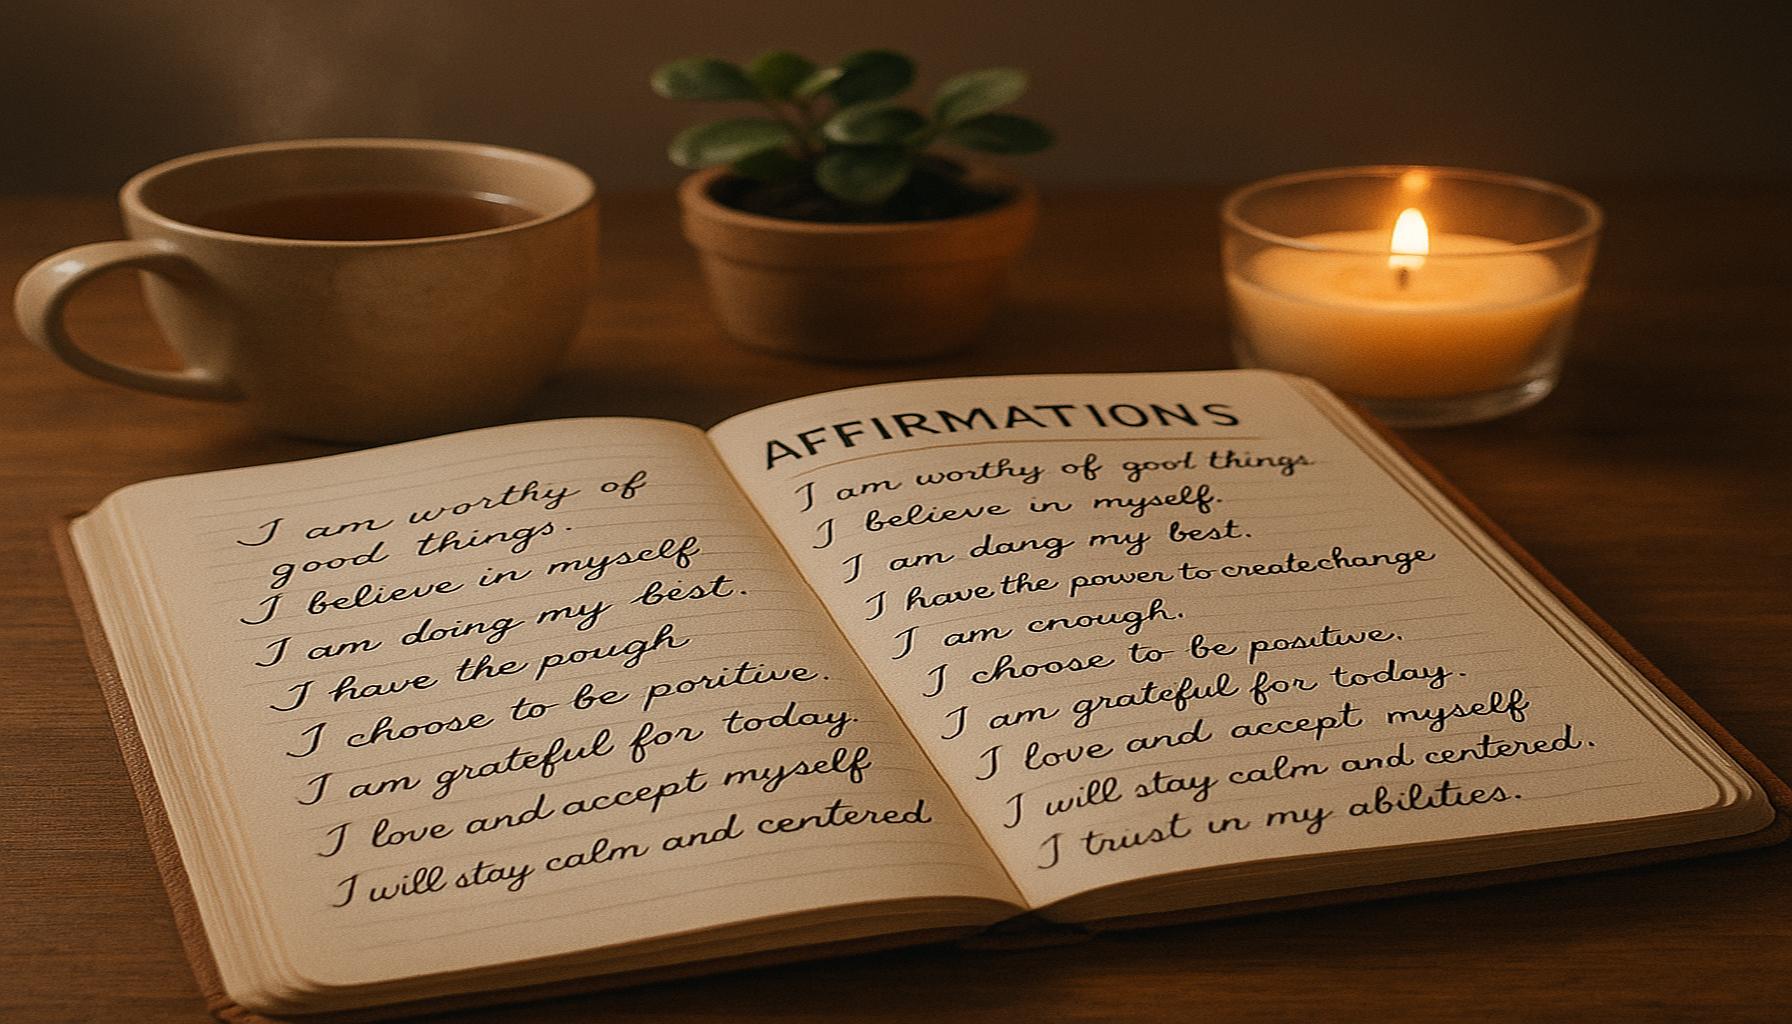 I am worthy of
good things.
I believe in myself
I am doing my best.
I have the pough
I choose to be poritive.
I am grateful for today.
I love and accept myself
I will stay calm and centered
AFFIRMATIONS
I am worthy of good things
I believe in myself.
I am dang my best.
I have the power to createchange
I am cnough.
I choose to be positive.
I am grateful for today.
I love and accept myself
I will stay calm and centered.
I trust in my abilities.